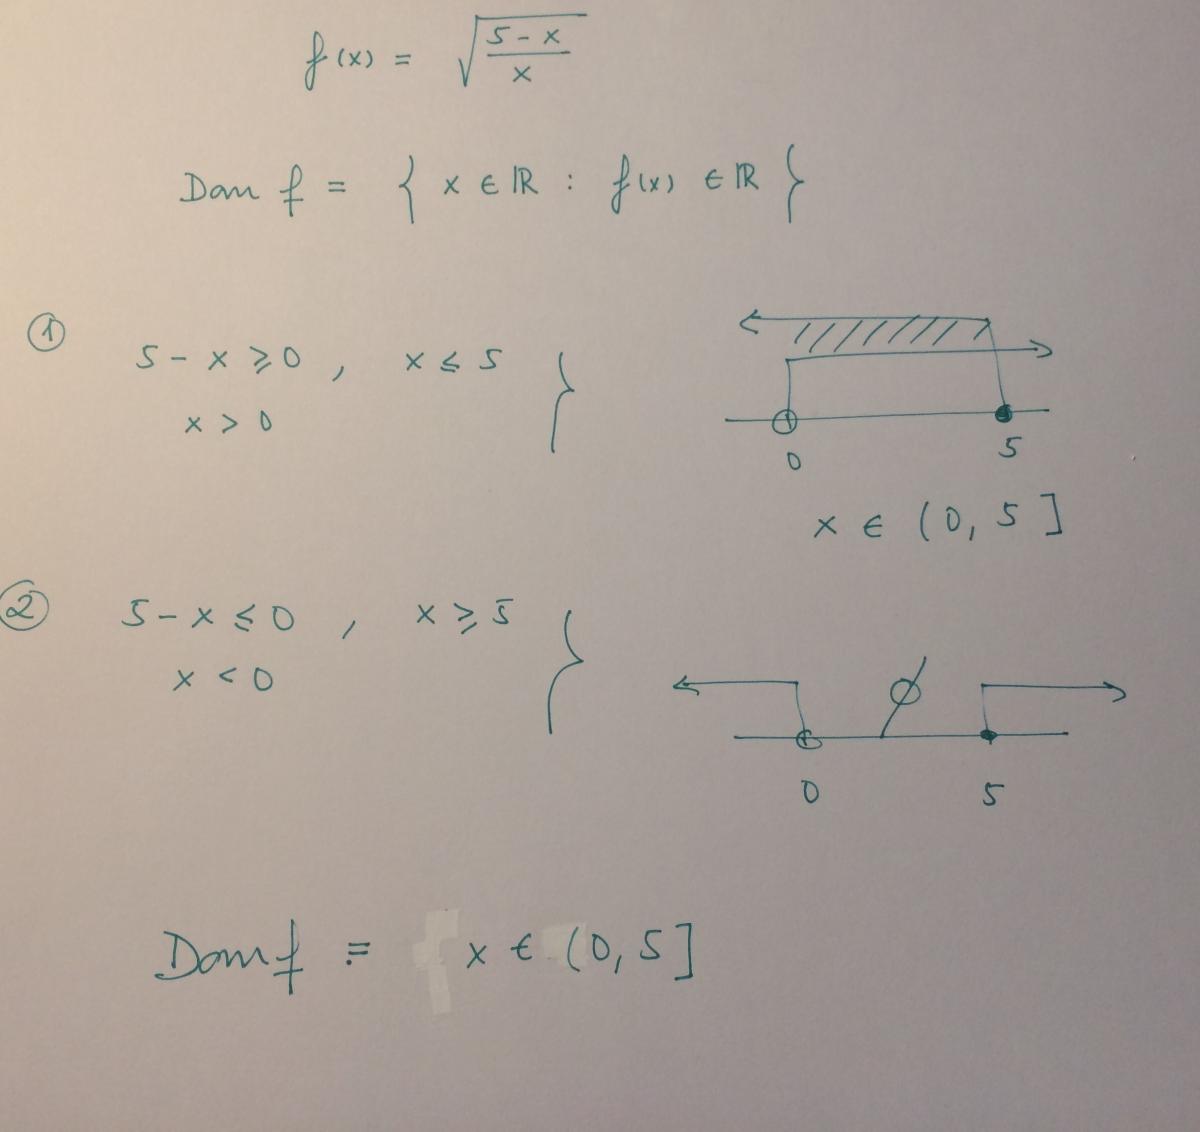 f(x) = √((5-x)/x)
Dom f = { x ∈ ℝ : f(x) ∈ ℝ }
①
5-x ⩾ 0 , x ≤ 5 }
x > 0
0 5
x ∈ (0, 5]
②
5-x ≤ 0 , x ⩾ 5 }
x < 0
∅
0 5
Dom f = x ∈ (0, 5]